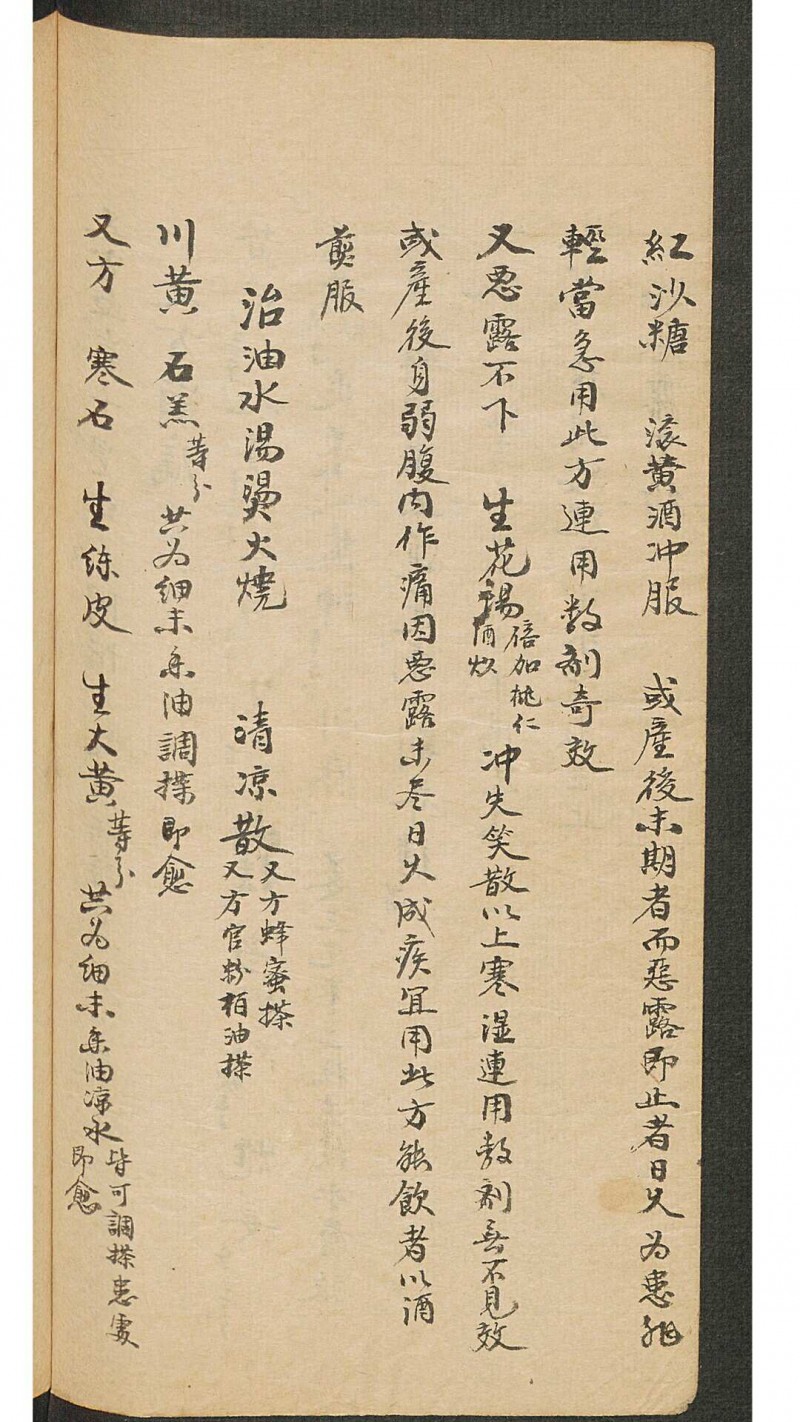 紅沙糖 滾黃酒冲服 或產後未期者而惡露即止者日久為患非
輕當急用此方連用数剂奇效
又惡露不下 生花
酒炒 倍加桃仁
冲失笑散以上寒濕連用数剂無不見效
或產後身弱腹内作痛因惡露未尽日久成疾宜用此方能飲者以酒
煎服
治油水湯燙火燒 清凉散
又方蜂蜜搽
又方官粉柏油搽
川黄 石羔 等分 共为细末香油調搽即愈
又方 寒石 生练皮 生大黄 等分 共为细末香油凉水
皆可調搽患處
即愈